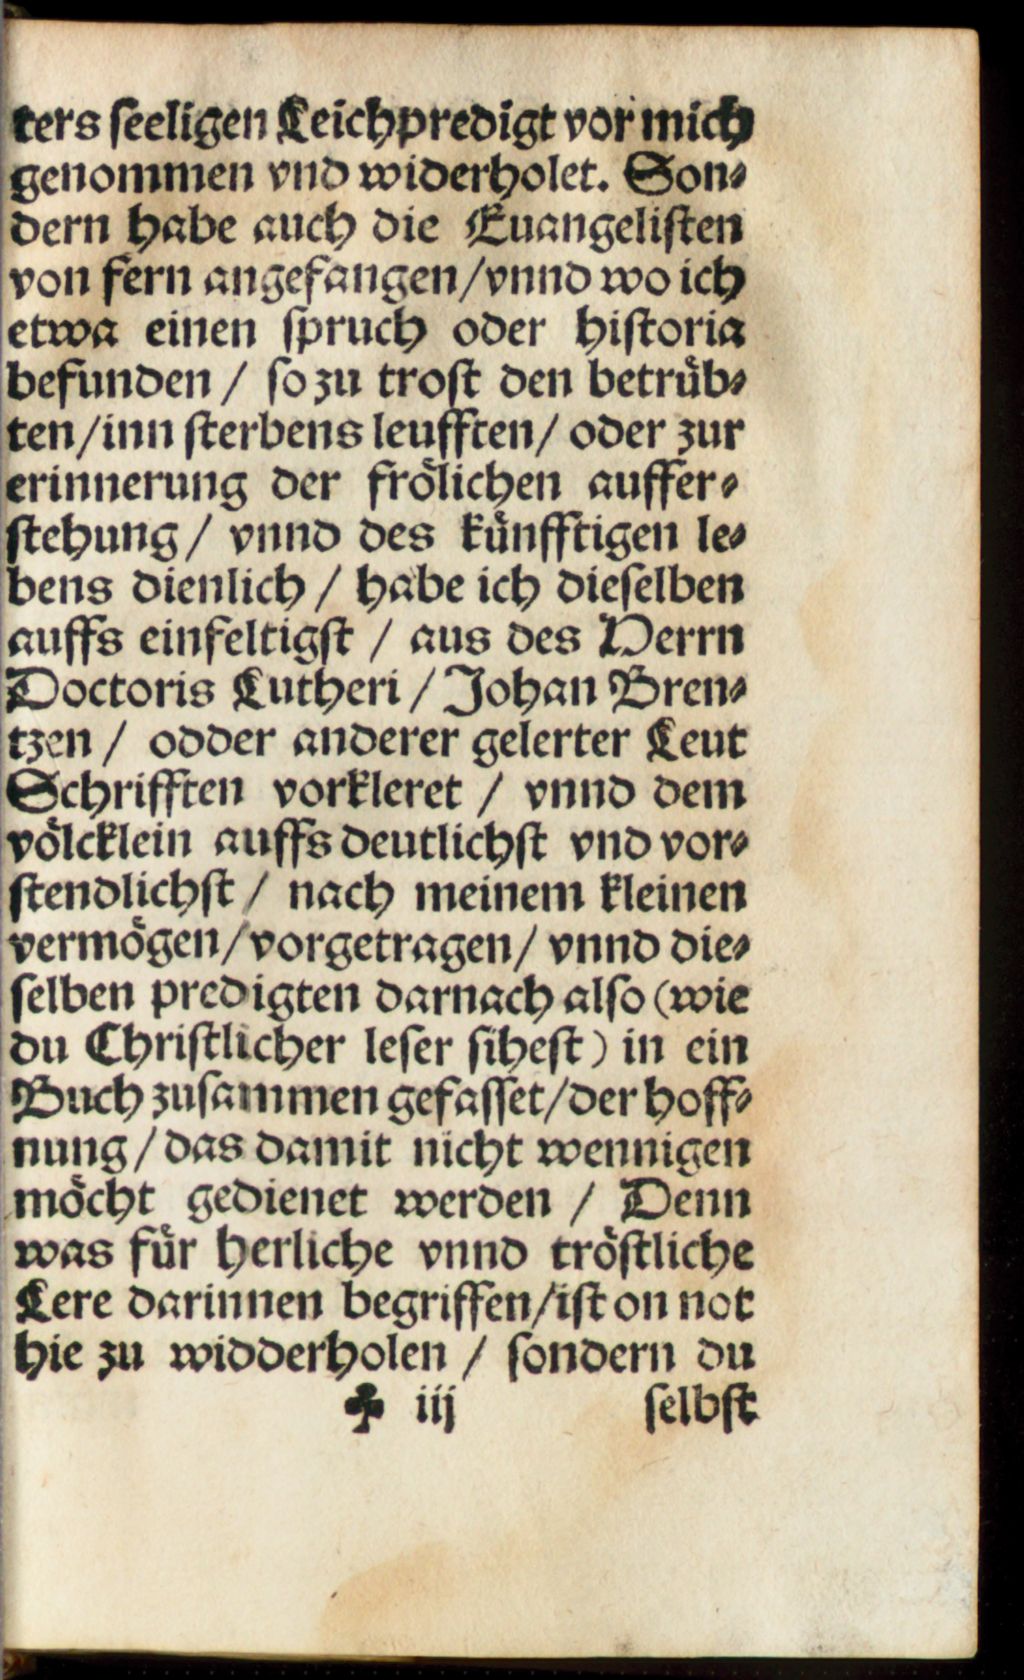 ters ſeeligen Leichpredigt vor mich
genommen vnd widerholet. Son⸗
dern habe auch die Euangeliſten
von fern angefangen/vnnd wo ich
etwa einen ſpruch oder hiſtoria
befunden / ſo zu troſt den betruͤb⸗
ten/inn ſterbens leufften/ oder zur
erinnerung der froͤlichen auffer⸗
ſtehung / vnnd des kuͤnfftigen le⸗
bens dienlich / habe ich dieſelben
auffs einfeltigſt / aus des Herrn
Doctoris Lutheri / Johan Bren⸗
tzen / odder anderer gelerter Leut
Schrifften vorkleret / vnnd dem
voͤlcklein auffs deutlichſt vnd vor⸗
ſtendlichſt / nach meinem kleinen
vermoͤgen/vorgetragen/ vnnd die⸗
ſelben predigten darnach alſo (wie
du Chriſtlicher leſer ſiheſt) in ein
Buch zuſammen gefaſſet/der hoff⸗
nung/das damit nicht wennigen
moͤcht gedienet werden / Denn
was fuͤr herliche vnnd troͤſtliche
Lere darinnen begriffen/iſt on not
hie zu widderholen / ſondern du
♣ iij ſelbſt